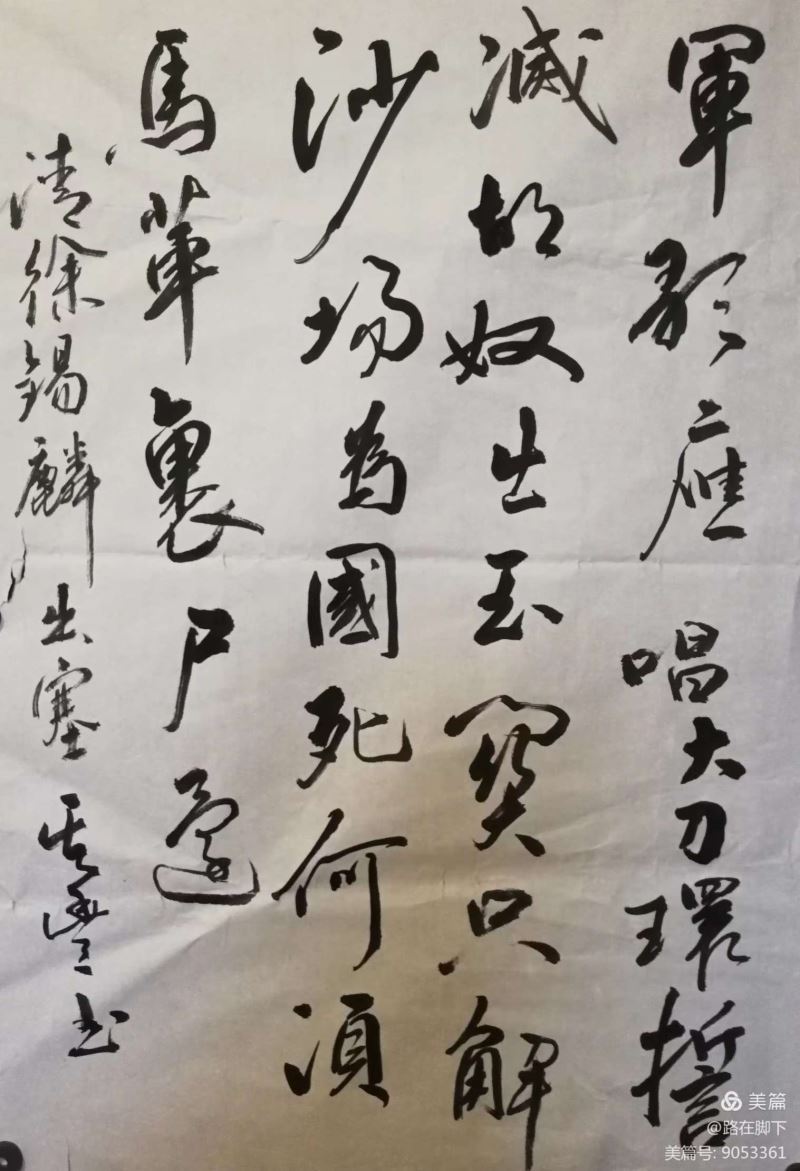 軍歌應唱大刀環誓
滅胡奴出玉關只解
沙場為國死何須
馬革裹尸還
清徐錫麟出塞 书
美篇
@路在脚下
美篇号: 9053361